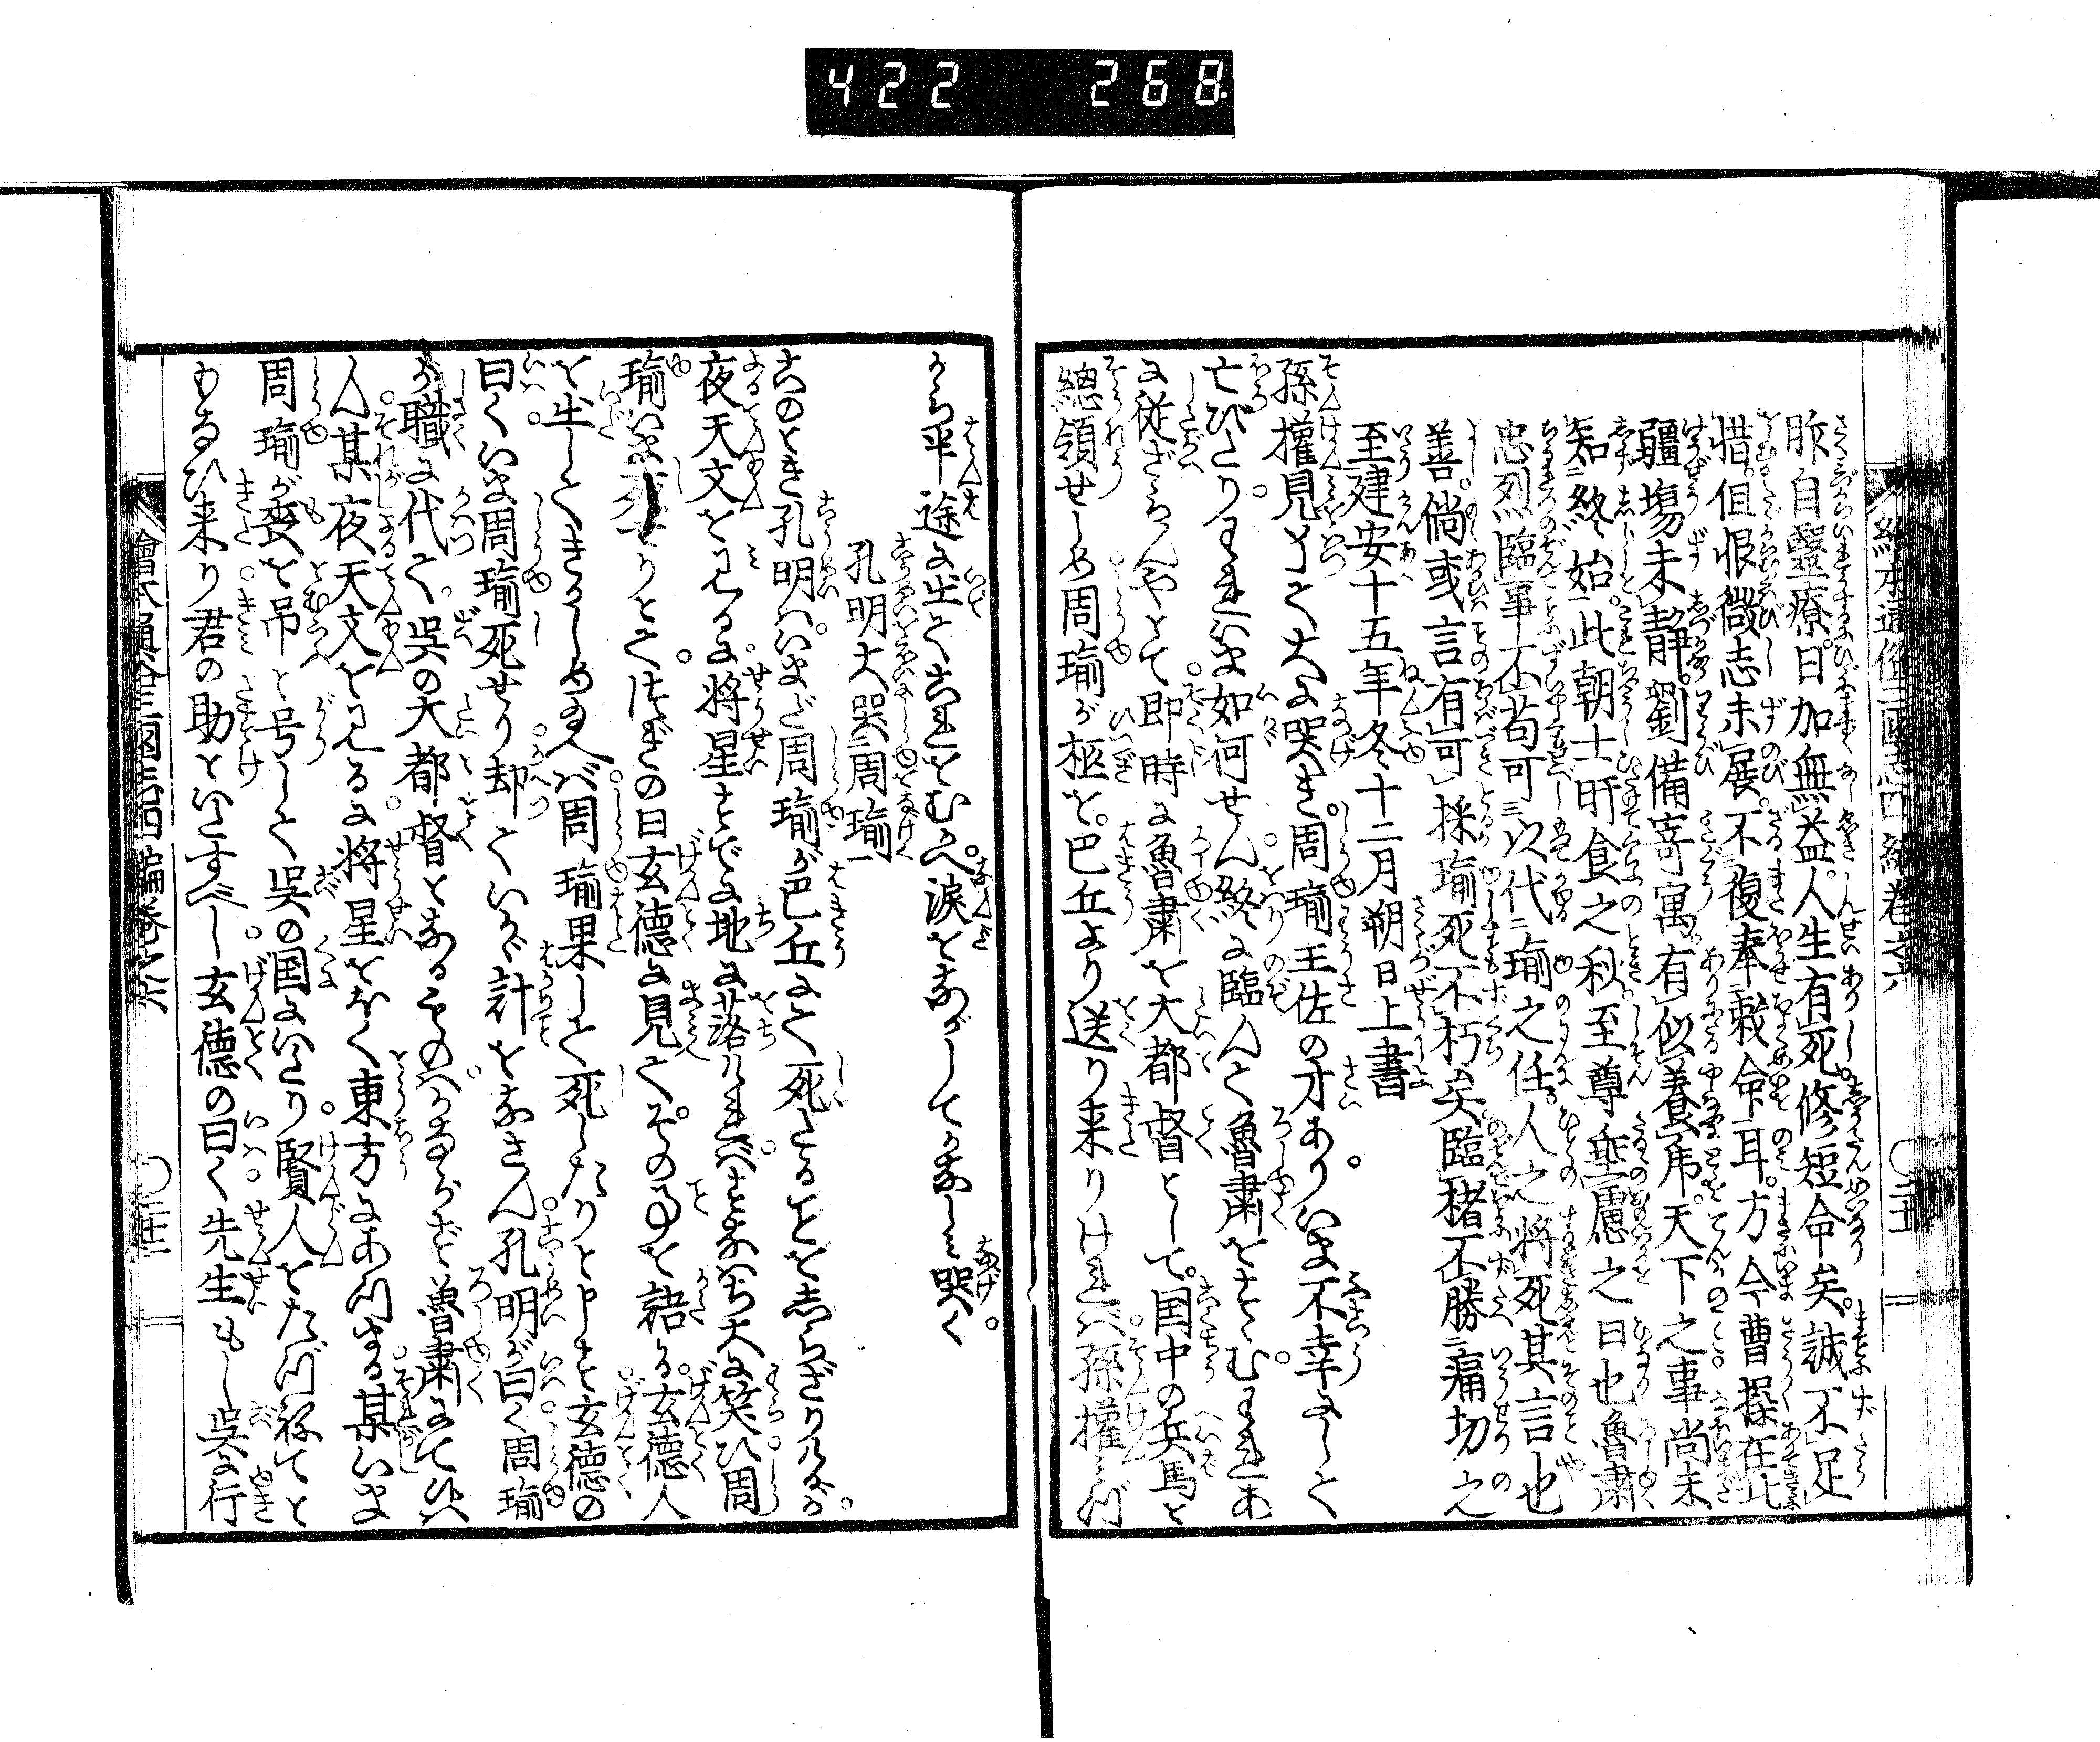 422 268
繪本通俗三國志四編卷之六
昨自醫療日加無益人生有死修短命矣誠不足
惜但恨微志未展不復奉敎命耳方今曹操在北
疆場未靜劉備寄寓有似養虎天下之事尚未
知終始此朝士旰食之秋至尊垂慮之日也魯肅
忠烈臨事不苟可以代瑜之任人之將死其言也
善倘或言有可採瑜死不朽矣臨楮不勝痛切之
至建安十五年冬十二月朔日上書
孫權見了て大に哭き周瑜王佐の才ありいま不幸にして
亡びたりわれいま如何せん終に臨んで魯肅をすゝむわれあ
に從ざらんやとて即時に魯肅を大都督として国中の兵馬を
總領せしめ周瑜が柩を巴丘より送り来りければ孫權みづ
から半途に出てこれをむかへ涙をながしてかなしみ哭く
孔明大哭周瑜
このとき孔明はいまだ周瑜が巴丘にて死たることをしらざりけるが
夜天文をみるに将星すでに地に落ければすなはち大に笑ひ周
瑜いま死せりとてつぎの日玄徳に見てその事を語る玄徳人
を出してきかしめ給へば周瑜果して死したりと申す玄徳の
曰くいま周瑜死せり却ていかゞ計をなさん孔明が曰く周瑜
が職に代て呉の大都督となるものはかならず魯肅にて候は
ん某夜天文をみるに将星おほく東方にあつまる某いま
周瑜が喪を吊と号して呉の国にいたり賢人をたづねてと
もなひ来り君の助といたすべし玄徳の曰く先生もし呉に行
繪本通俗三國志四編卷之六